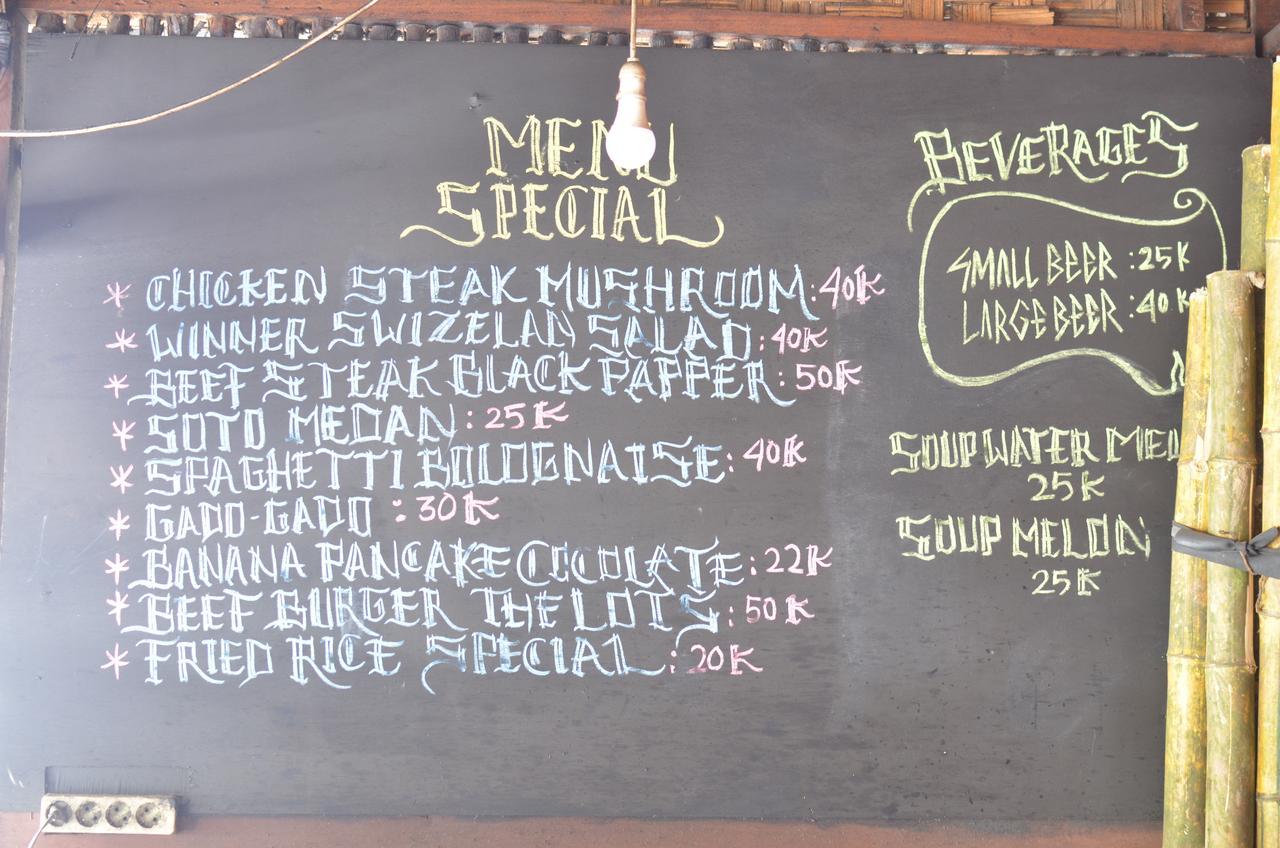 MENU
SPECIAL
* CHICKEN STEAK MUSHROOM : 40K
* WINNER SWIZELAN SALAD : 40K
* BEEF STEAK BLACK PAPPER : 50K
* SOTO MEDAN : 25K
* SPAGHETTI BOLOGNAISE : 40K
* GADO-GADO : 30K
* BANANA PANCAKE COCOLATE : 22K
* BEEF BURGER THE LOTS : 50K
* FRIED RICE SPECIAL : 20K
BEVERAGES
SMALL BEER : 25K
LARGE BEER : 40K
SOUP WATER MEL
25K
SOUP MELON
25K